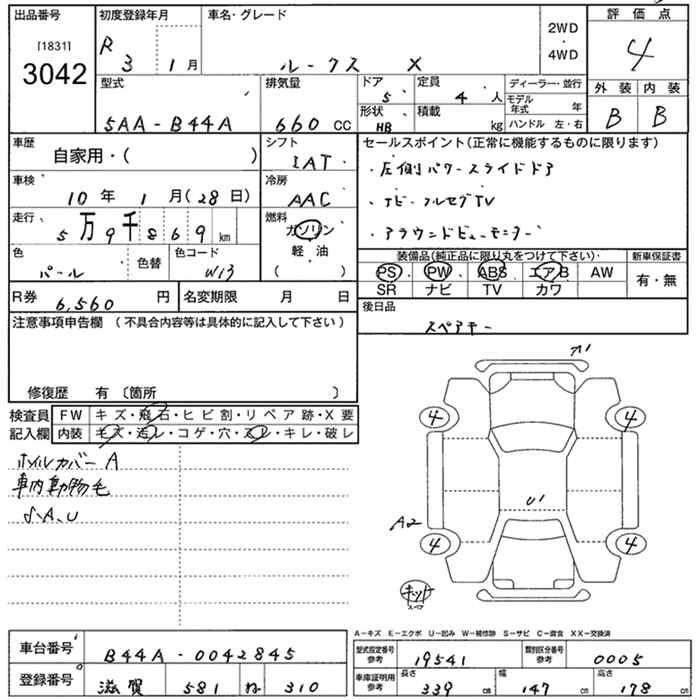 出品番号
[1831]
3042
初度登録年月
R 3 1月
車名・グレード
ルークス X
2WD
・
4WD
評価点
4
外装 内装
B B
型式
5AA-B44A
排気量
660 CC
ドア
5
定員
4 人
形状
HB
積載
kg
ディーラー・並行
モデル年式 年
ハンドル 左・右
車歴
自家用・( )
シフト
IAT
車検
10年 1月(28日)
冷房
AAC
走行
5万9千869km
燃料
ガソリン
軽・油
( )
色
パール
色替
色コード
W13
R券
6,560円
名変期限 月 日
セールスポイント(正常に機能するものに限ります)
・左側パワースライドドア
・ナビ・フルセグTV
・アラウンドビューモニター
装備品(純正品に限り丸をつけて下さい)
PS PW ABS エアB AW
SR ナビ TV カワ
新車保証書
有・無
後日品
スペアキー
注意事項申告欄 (不具合内容等は具体的に記入して下さい)
修復歴 有〔箇所 〕
検査員記入欄
FW キズ・飛石・ヒビ割・リペア跡・X要
内装 キズ・汚レ・コゲ・穴・スレ・キレ・破レ
ホイルカバーA
車内動物毛
S、A、U
ア1
4 4
U1
A2
4 4
キット
スペア
A−キズ E−エクボ U−凹み W−補修跡 S−サビ C−腐食 XX−交換済
車台番号
B44A-0042845
登録番号
滋賀 581 ね 310
型式指定番号 参考
19541
類別区分番号 参考
0005
車庫証明用 参考
長さ 339cm
幅 147cm
高さ 178cm